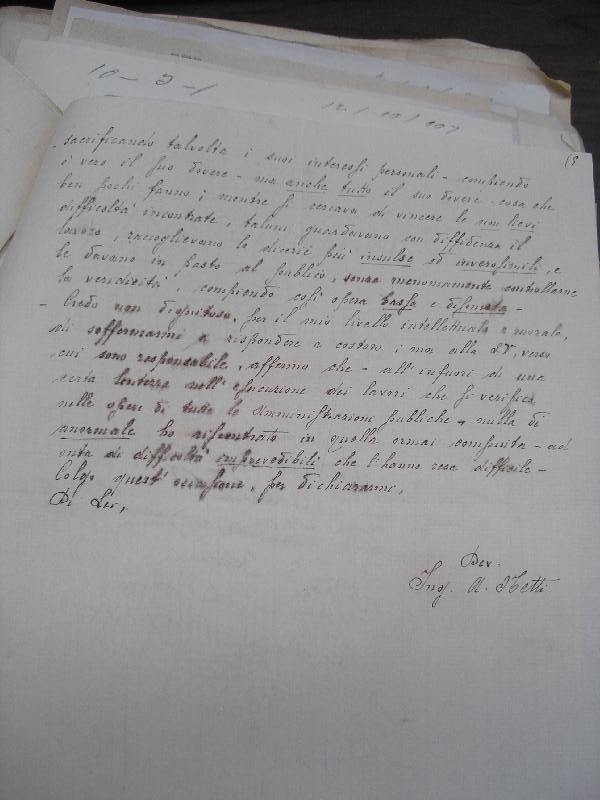 sacrificando talvolta i suoi interessi personali - compiendo
è vero il suo dovere - ma anche tutto il suo dovere - cosa che
ben pochi fanno; mentre si cercava di vincere le non lievi
difficoltà incontrate, taluni guardavano con diffidenza il
lavoro, raccoglievano le dicerie più insulse ed inverosimili, e
le davano in pasto al publico, senza menomamente controllarne
la veridicità, compiendo così opera bassa e
- Credo non dignitoso, per il mio livello intellettuale e morale,
di soffermarmi a rispondere a costoro; ma alla SV, verso
cui sono responsabile, affermo che - all'infuori di una
certa lentezza nell'esecuzione dei lavori che si verifica
nelle opere di tutte le Amministrazioni publiche - nulla di
anormale ho riscontrato in quella ormai compiuta - ad
onta di difficoltà imprevedibili che l'hanno resa difficile -
Colgo quest'occasione, per dichiararmi,
Di Lei,
Dev.
Ing. A.